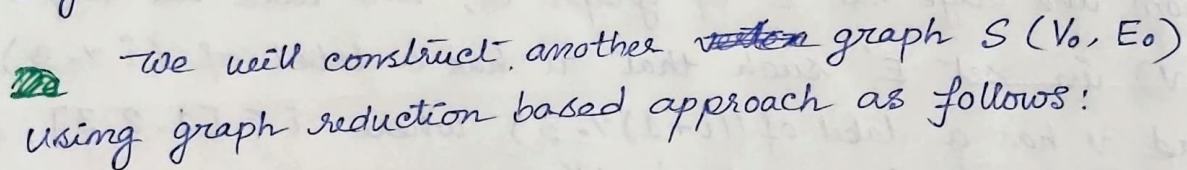 We will construct another graph S (V₀, E₀)
using graph reduction based approach as follows: